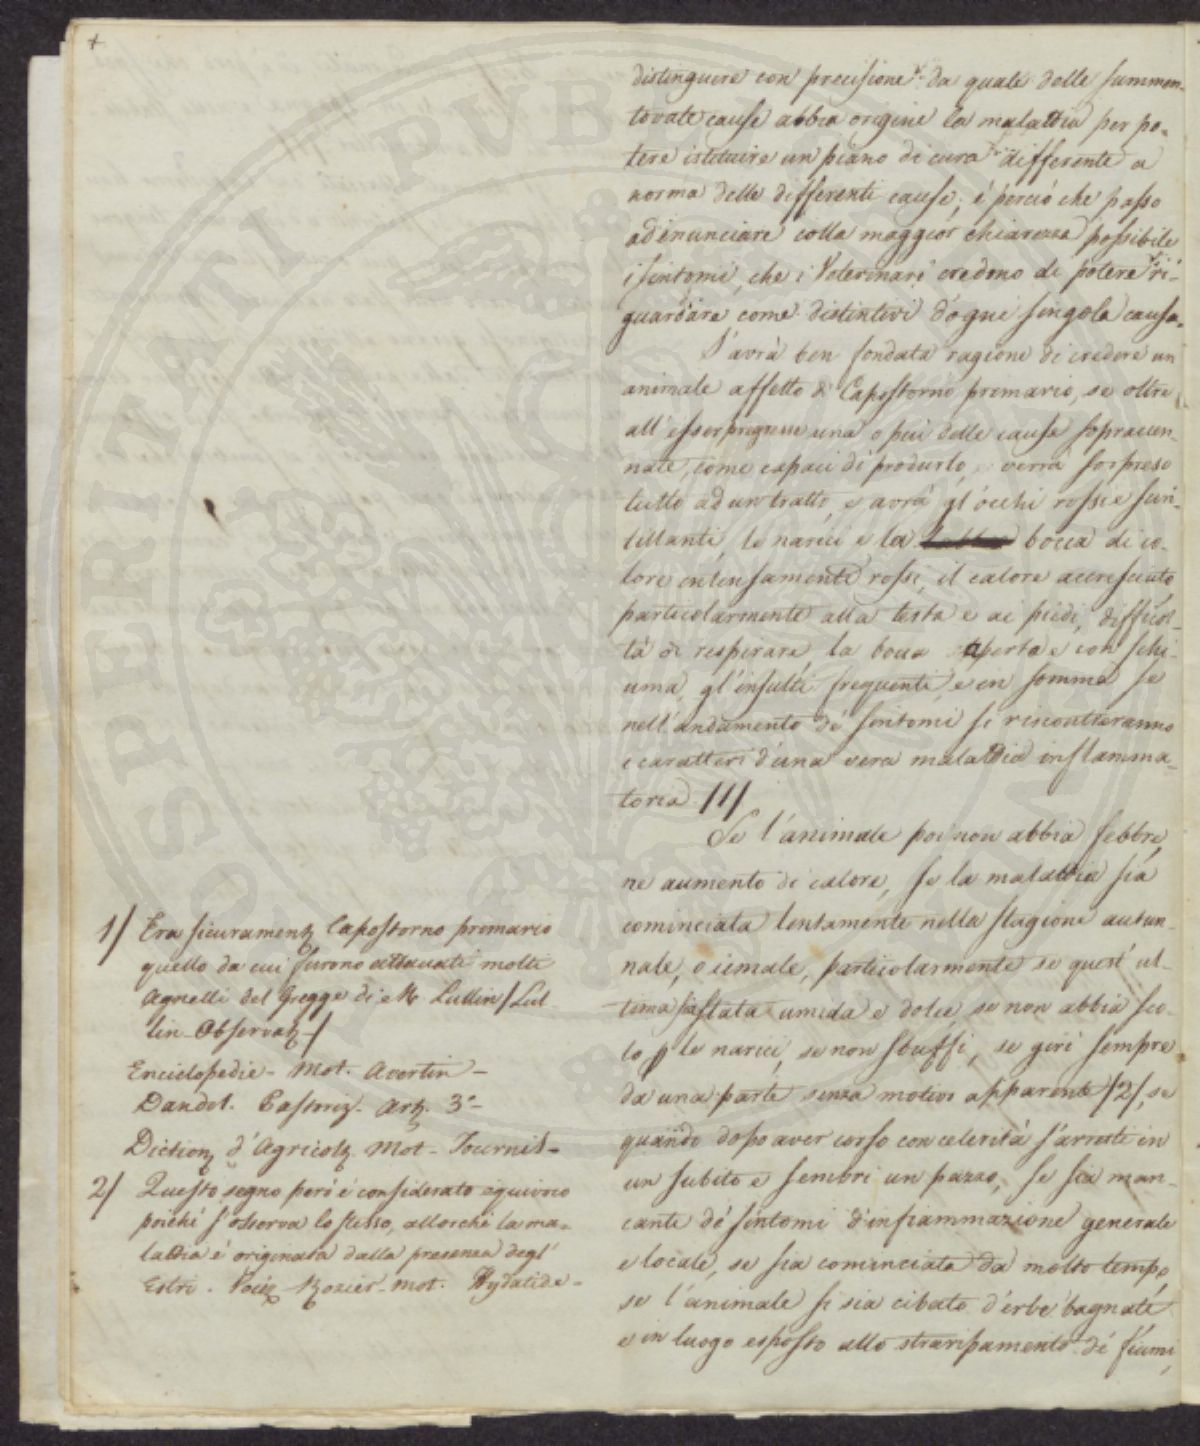 distinguere con precisione da quale delle summen-
tovate cause abbia origine la malattia per po-
tere istituire un piano di cura differente a
norma delle differenti cause; è perciò che passo
ad enunciare colla maggior chiarezza possibile
i sintomi, che i Veterinari credono di potere ri-
guardare come distintivi d'ogni singola causa.
S'avrà ben fondata ragione di credere un
animale affetto di Capostorno primario, se oltre
all'esser pregresse una o più delle cause sopraccen-
nate, come capaci di produrlo, verrà sorpreso
tutto ad un tratto, e avrà gl'occhi rossi e scin-
tillanti, le narici e la bocca di co-
lore intensamente rossi, il calore accresciuto
particolarmente alla testa e ai piedi, difficol-
tà di respirare, la bocca aperta e con schi-
uma, gl'insulti frequenti, e in somma se
nell'andamento de' sintomi si riscontreranno
i caratteri d'una vera malattia inflamma-
toria /1/
Se l'animale poi non abbia febbre,
ne aumento di calore, se la malattia sia
cominciata lentamente nella stagione autun-
nale, o iemale, particolarmente se quest'ul-
tima sia stata umida e dolce, se non abbia sco-
lo le narici, se non sbuffi, se giri sempre
da una parte senza motivo apparente /2/, se
quando dopo aver corso con celerità s'arresti in
un subito e sembri un pazzo, se sia man-
cante de' sintomi d'infiammazione generale
e locale, se sia cominciata da molto tempo
se l'animale si sia cibato d'erbe bagnate
e in luogo esposto allo straripamento de' fiumi,
1/ Era sicuramente Capostorno primario
quello da cui furono attaccati molti
Agnelli del Gregge di Mr Lullin / Lul-
lin Observat. /
Enciclopedie - Mot. Avertin -
Dandol. Pastoriz. Art. 3°-
Diction d'Agricolt Mot - Tournis -
2/ Questo segno però è considerato equivoco
poiché s'osserva lo stesso, allorché la ma-
lattia è originata dalla presenza degl'
Estri. Rozier - mot. Hydatide -